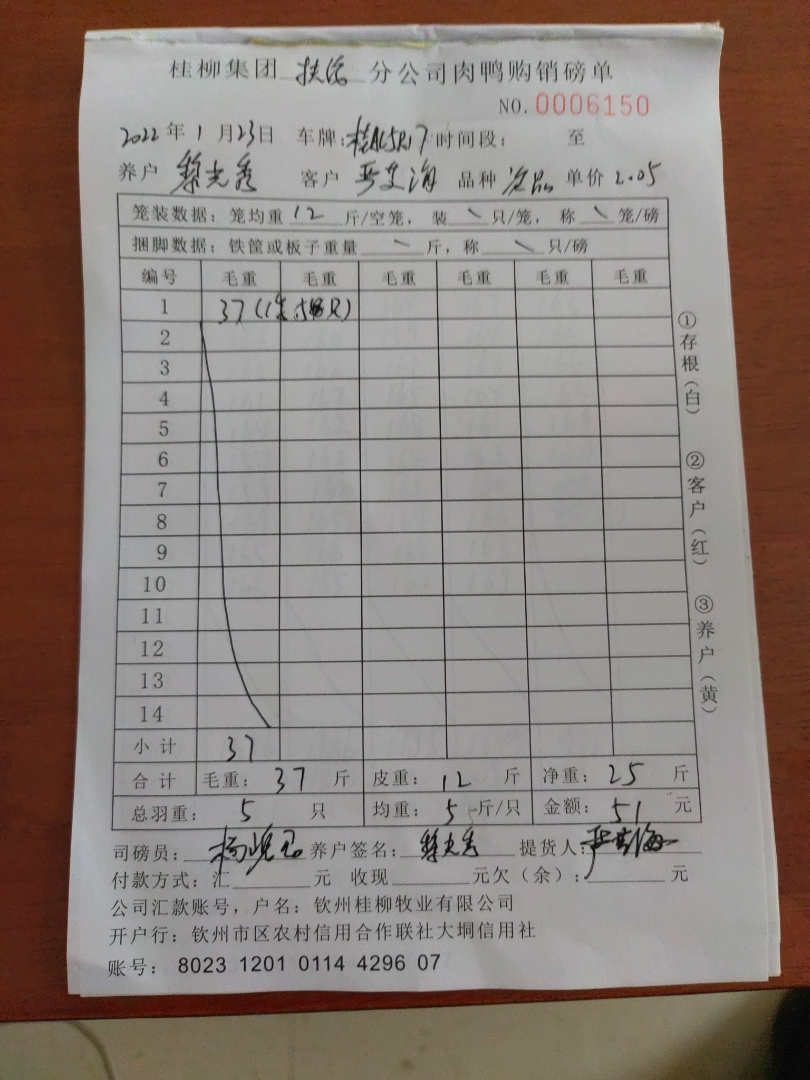 桂柳集团 扶绥 分公司肉鸭购销磅单
NO. 0006150
2022年1月23日 车牌: 时间段: 至
养户 黎光秀 客户 严 海 品种 次品 单价 2.05
笼装数据: 笼均重 12 斤/空笼, 装 \ 只/笼, 称 \ 笼/磅
捆脚数据: 铁筐或板子重量 \ 斤, 称 \ 只/磅
编号 毛重 毛重 毛重 毛重 毛重 毛重
1 37 (1笼 5只)
2
3
4
5
6
7
8
9
10
11
12
13
14
小计 37
合计 毛重: 37 斤 皮重: 12 斤 净重: 25 斤
总羽重: 5 只 均重: 5 斤/只 金额: 51 元
司磅员: 杨 养户签名: 黎光秀 提货人: 严 海
付款方式: 汇 元 收现 元欠(余): 元
公司汇款账号, 户名: 钦州桂柳牧业有限公司
开户行: 钦州市区农村信用合作联社大垌信用社
账号: 8023 1201 0114 4296 07
①存根(白) ②客户(红) ③养户(黄)